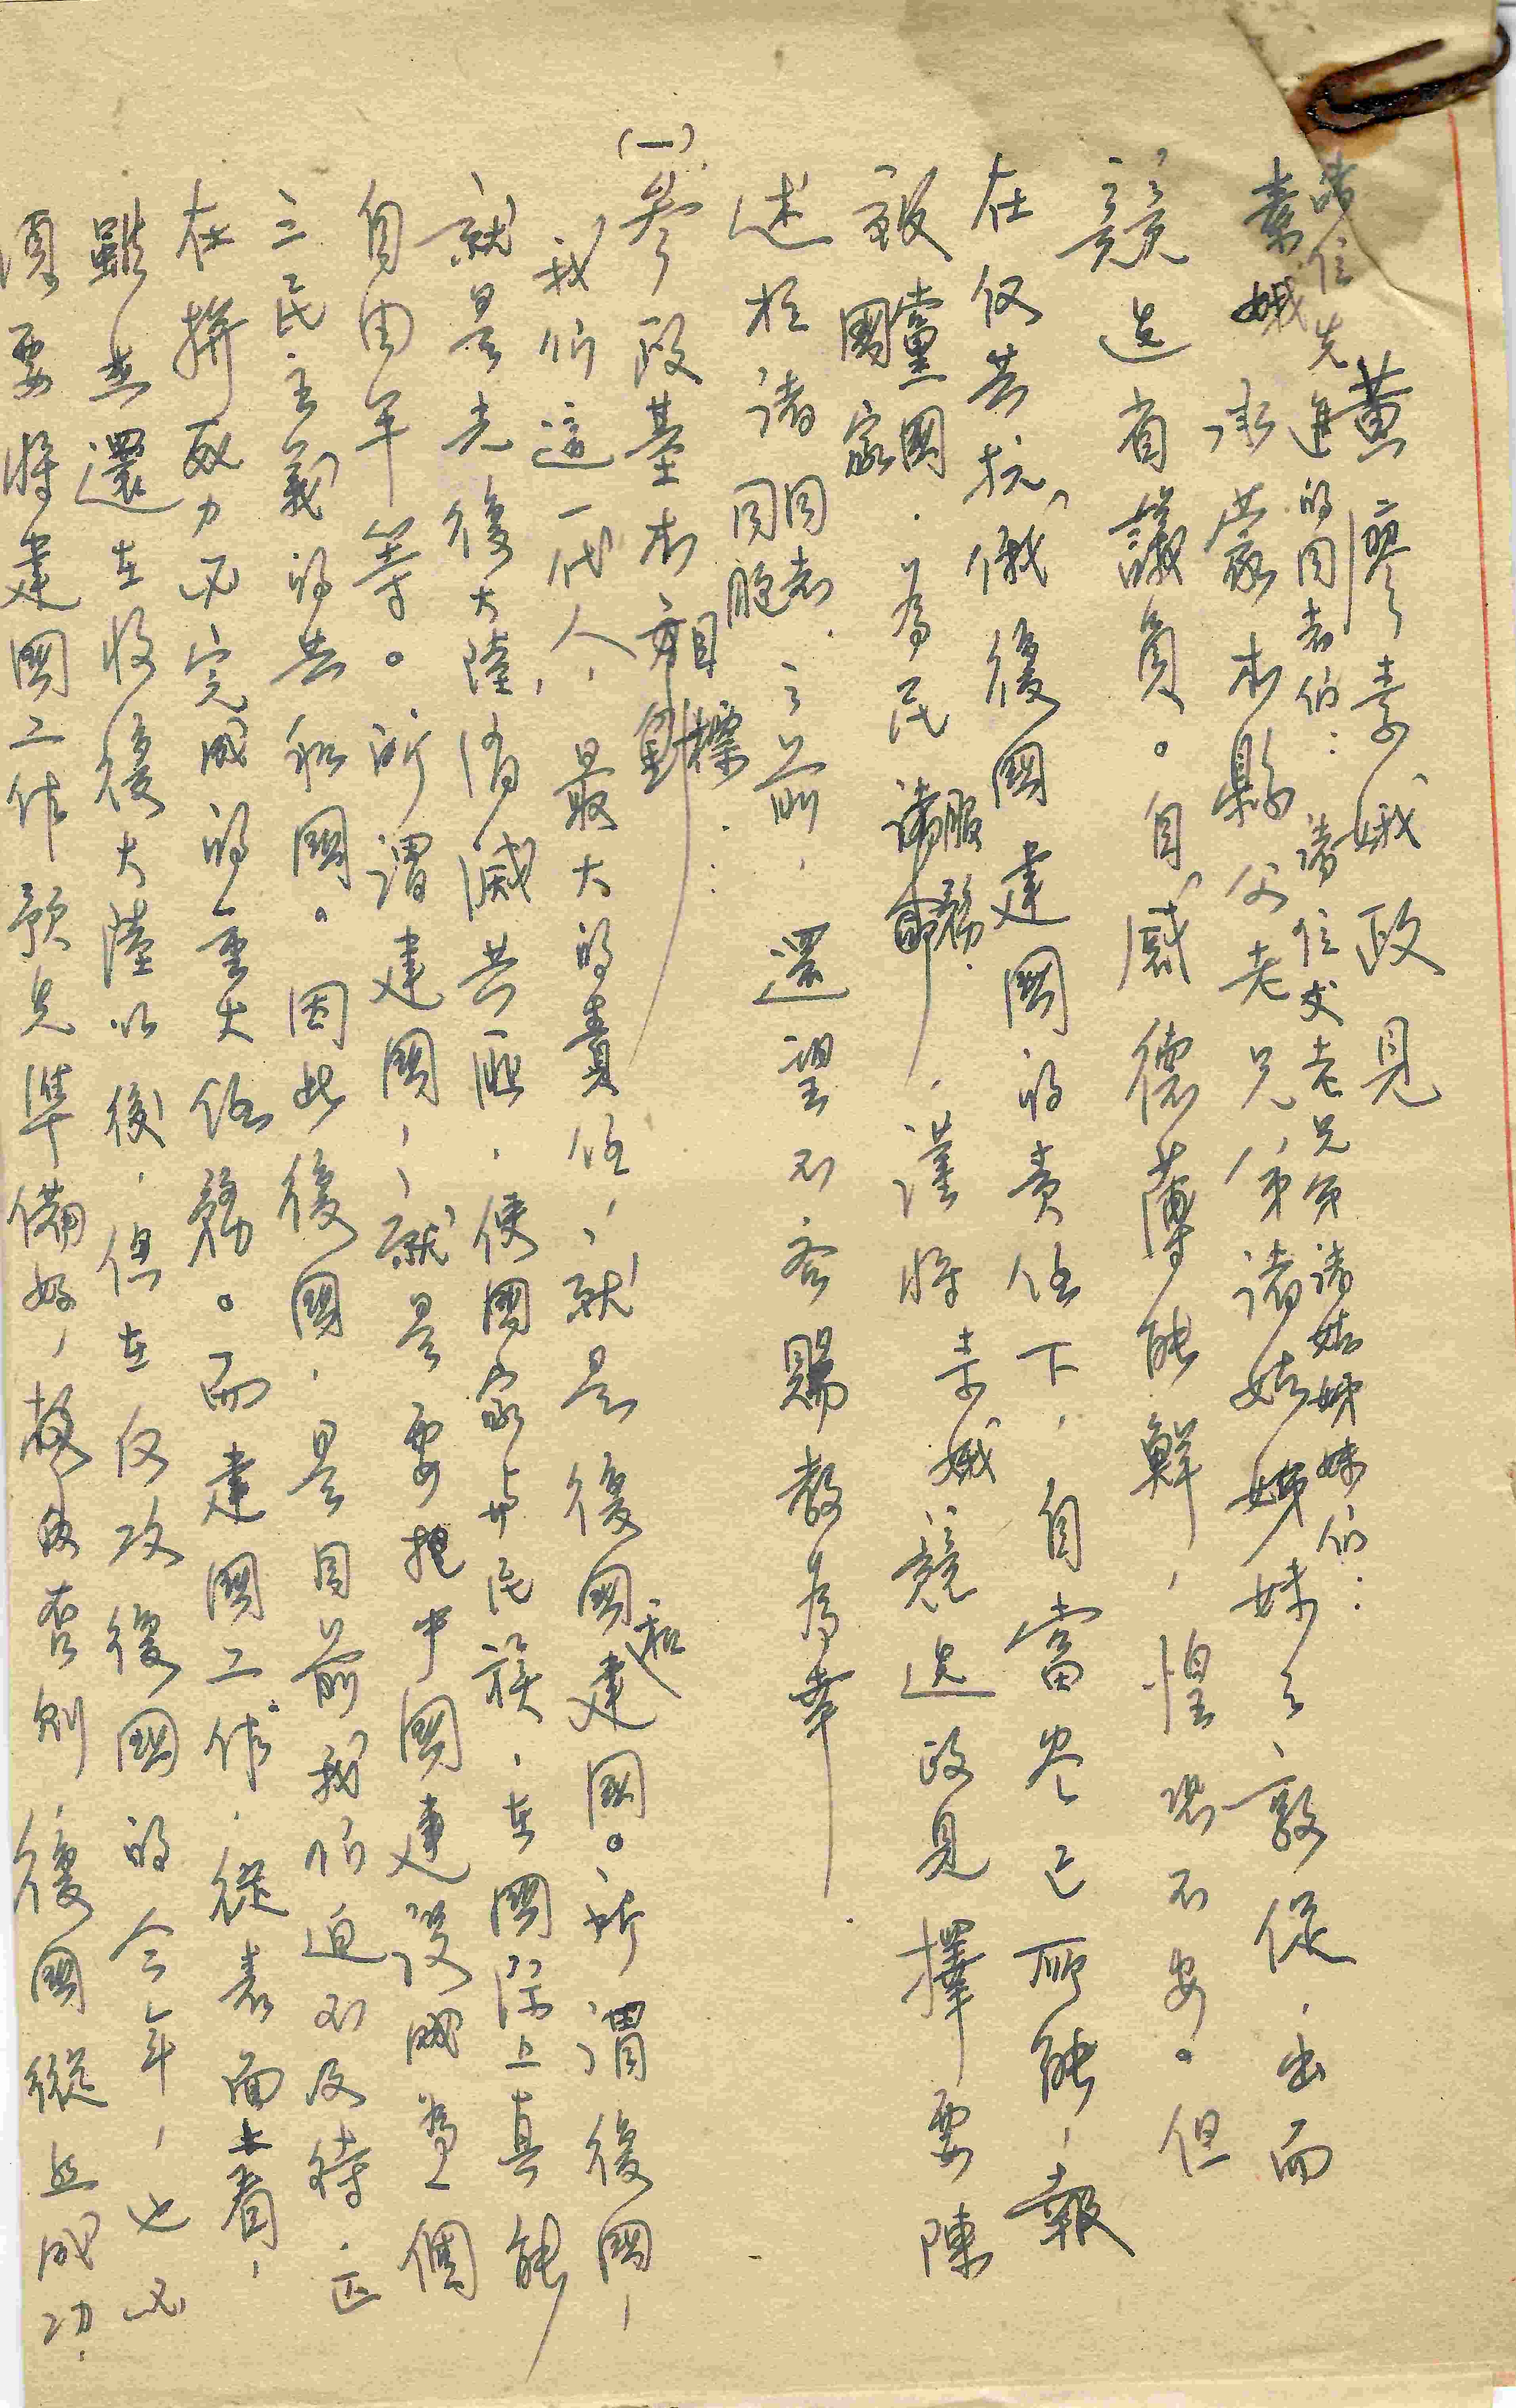 黃廖素娥政見
諸位先進的同志們：諸位父老兄弟諸姑姊妹們：
素娥承蒙本縣父老兄弟諸姑姊妹之敦促．出而
競選省議員。自感德薄能鮮，惶恐不安。但
在反共抗俄復國建國的責任下，自當尽己所能，報
效黨國．為民服務．謹將素娥競選政見擇要陳
國家 請命
述於諸同志．之前，還望不吝賜教為幸
同胞
(一)參政基本目標：
方針
我們這一代人，最大的責任，就是復國和建國。所謂復國，
就是光復大陸，消滅共匪．使國家与民族．在國際上真能
自由平等。所謂建國，就是要把中國建設成為一個
三民主義的共和國。因此復國．是目前我們迫不及待．正
在拼死力必完成的重大任務。而建國工作．從表面上看，
雖然還在收復大陸以後，但在反攻復國的今年，也必
須要將建國工作預先準備好，否則，復國縱然成功．